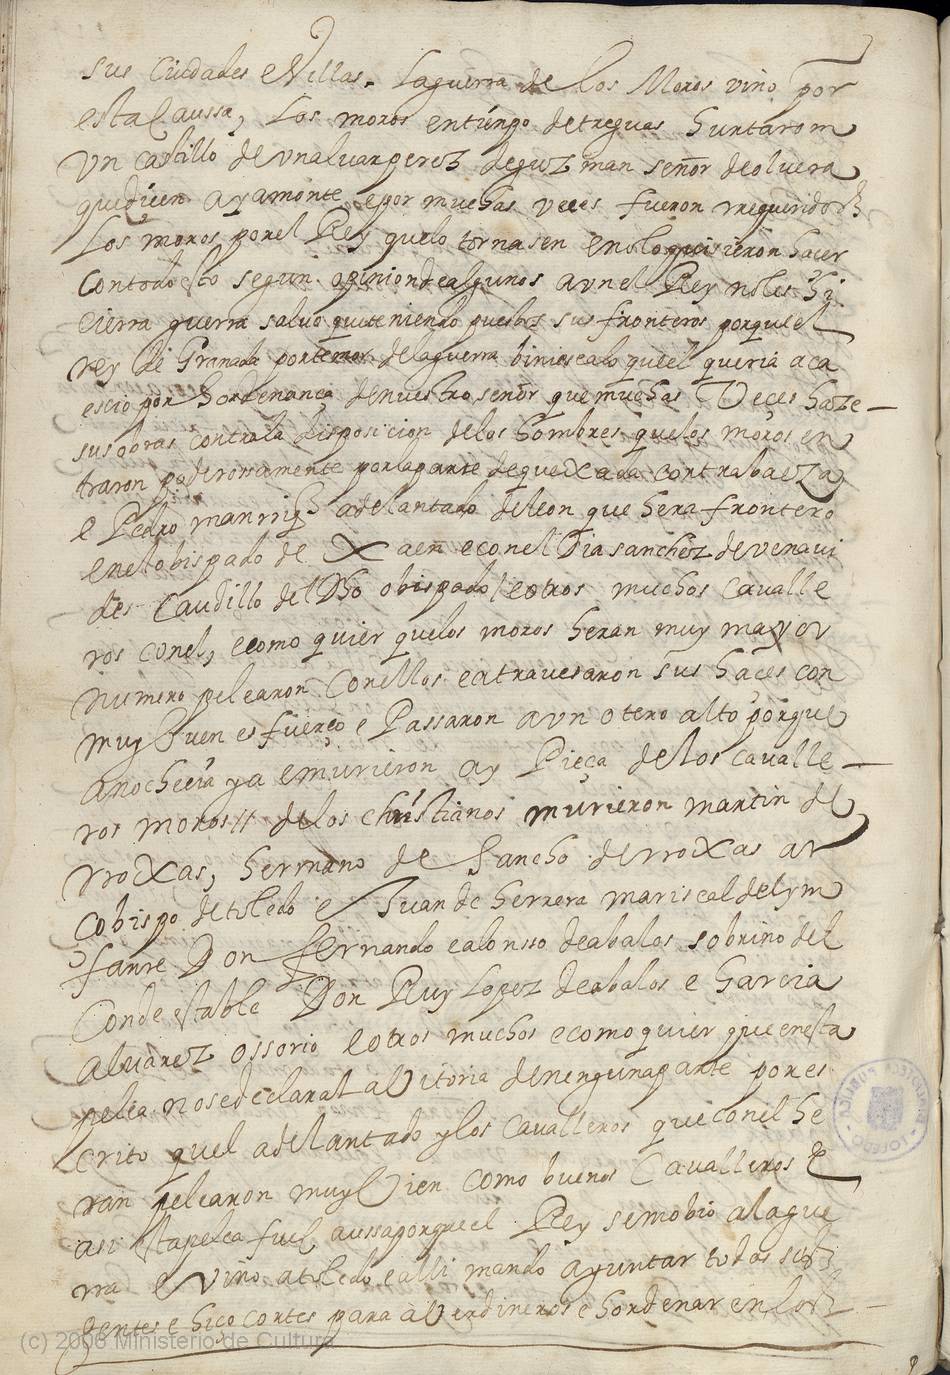 sus Ciudades e Villas. la guerra de los Moros vino por
esta Caussa, Los moros en tienpo de treguas hurtarom
Un castillo de un aluar perez de guzman señor de oluera
que diçen ayamonte e por muchas veces fueron rrequeridos
Los moros por el Rey que lo tornasen e no lo quisieron hacer
con todo esto segun opinion de algunos avn el Rey no les hi
cierra guerra salvo que teniendo puestos sus fronteros porque el
rey de Granada por temor de la guerra biniese a lo quel queria aca
escio por hordenança de nuestro señor que muchas Veçes haze
sus obras contra la disposicion de los hombres que los moros en
traron poderosamente por la parte de quexada contra baeza
e Pedro manrriq adelantado de leon que hera frontero
en el obispado de Xaen e con el Dia sanchez de venaui
des Caudillo del Dho obispado e otros muchos Cavalle
ros con el, e como quier que los moros heran muy mayor
numero pelearon Con ellos e atravesaron sus haçes con
muy buen esfuerço e Passaron a vn otero alto porque
anocheçia ya e murieron ay Pieça de los cavalle
ros moros // de los christianos murieron martin de
rroxas, hermano de Sancho de rroxas ar
cobispo de toledo e Juan de herrera mariscal del ym
fante Don fernando e alonsso de abalos sobrino del
Conde estable Don Ruy Lopez de abalos e Garcia
alvarez ossorio e otros muchos e como quier que en esta
pelea no se declara la Vitoria de nenguna parte por es
crito quel adelantado y los cavalleros que con el he
ran pelearon muy Vien como buenos Cavalleros e
asi esta pelea fue caussa porque el Rey se mobio a la gue
rra e vino a toledo e alli mando ayuntar todas sus
gentes e hiço cortes para aver dineros e hordenar en los
(c) 2006 Ministerio de Cultura